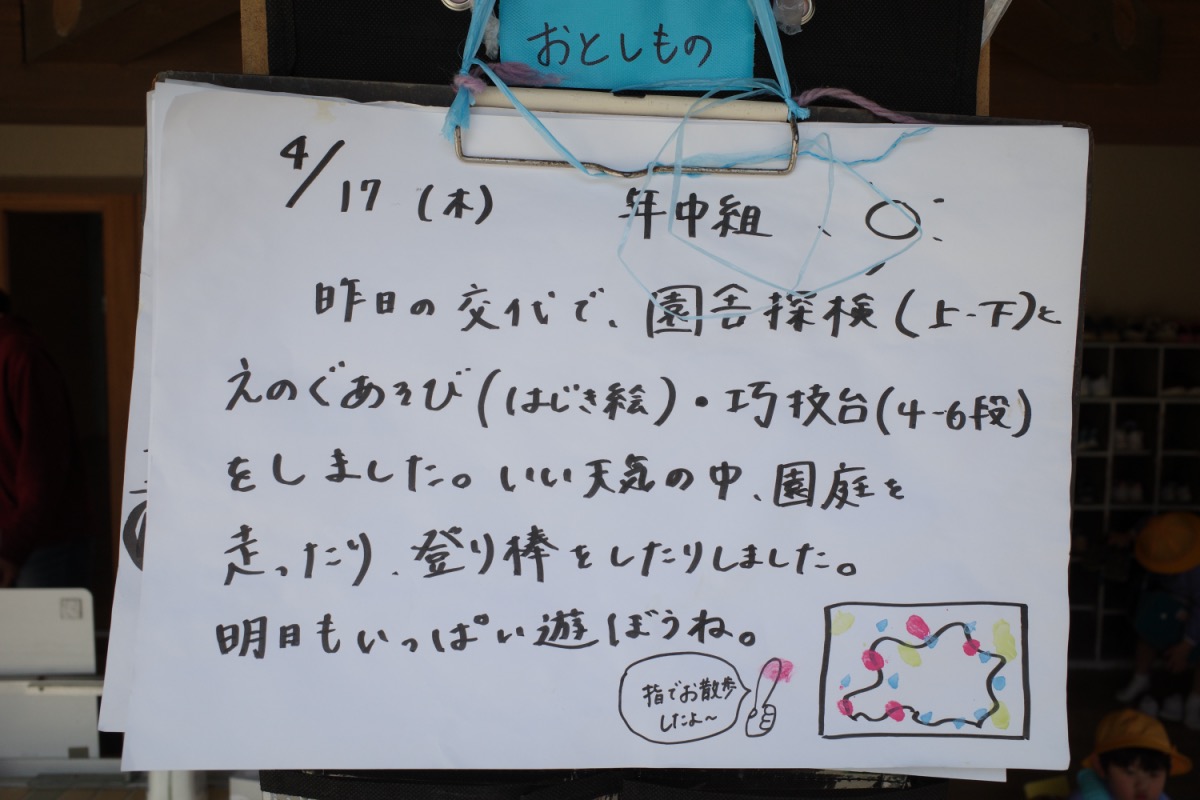 おとしもの
4/17(木) 年中組
昨日の交代で、園舎探検(上-下)と
えのぐあそび(はじき絵)・巧技台(4-6段)
をしました。いい天気の中、園庭を
走ったり、登り棒をしたりしました。
明日もいっぱい遊ぼうね。
指でお散歩
したよ~